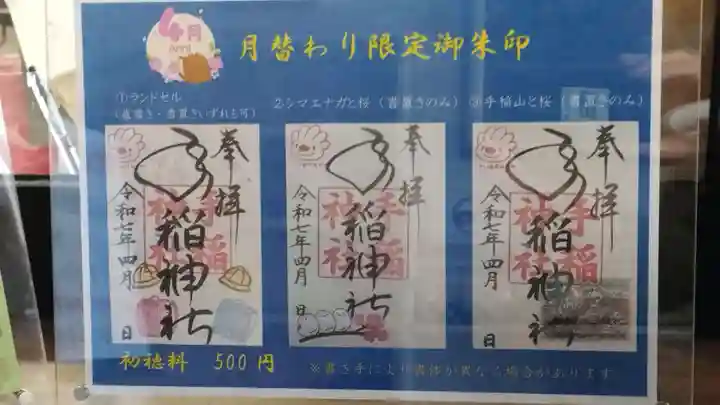 4月
April
月替わり限定御朱印
①ランドセル
(直書き・書置きいずれも可)
②シマエナガと桜(書置きのみ)
③手稲山と桜(書置きのみ)
奉拝
手稲神社
手稲神社
令和七年四月 日
奉拝
手稲神社
手稲神社
令和七年四月 日
奉拝
手稲神社
手稲神社
令和七年四月 日
初穂料 500円
※書き手により書体が異なる場合があります